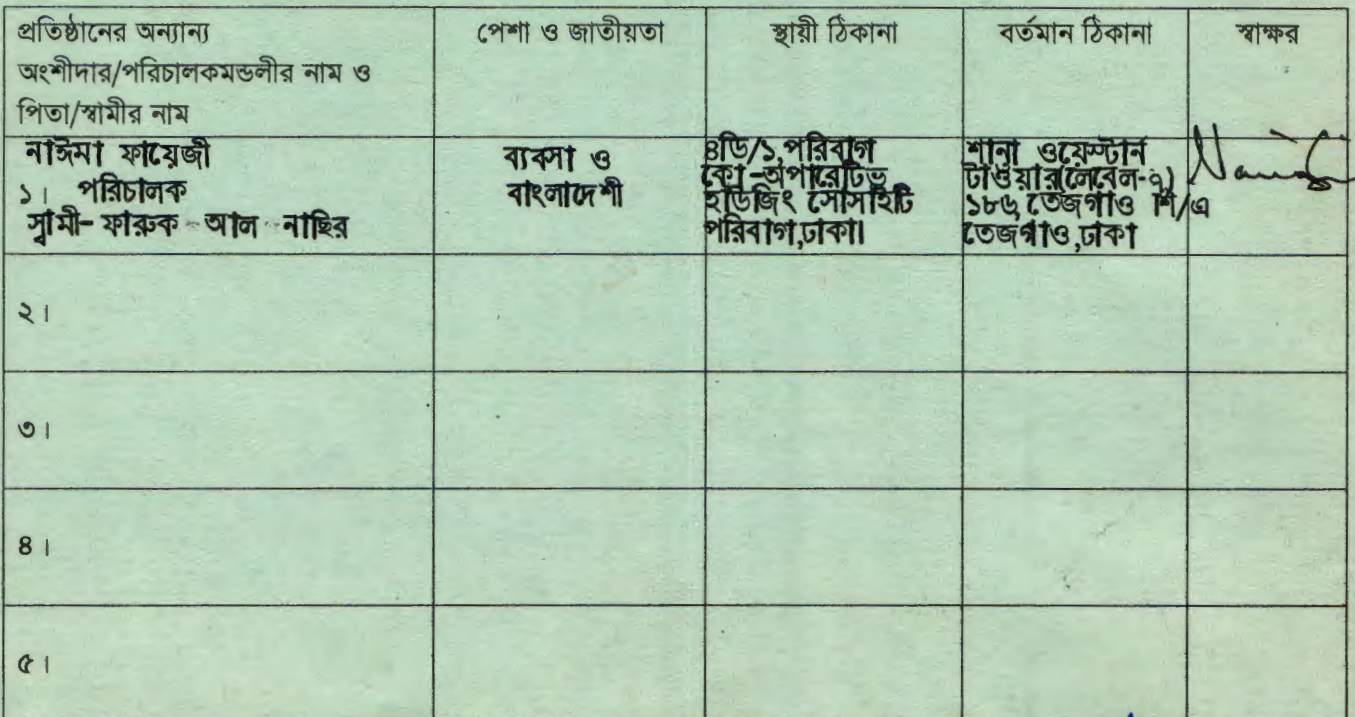 প্রতিষ্ঠানের অন্যান্য
অংশীদার/পরিচালকমন্ডলীর নাম ও
পিতা/স্বামীর নাম
পেশা ও জাতীয়তা
স্থায়ী ঠিকানা
বর্তমান ঠিকানা
স্বাক্ষর
নাঈমা ফায়েজী
১। পরিচালক
স্বামী- ফারুক - আল - নাছির
ব্যবসা ও
বাংলাদেশী
৪ডি/১,পরিবাগ
কো-অপারেটিভ
হাউজিং সোসাইটি
পরিবাগ,ঢাকা।
শান্তা ওয়েস্টার্ন
টাওয়ার(লেবেল-৭)
১৮৬ তেজগাঁও শি/এ
তেজগাঁও,ঢাকা
২।
৩।
৪।
৫।